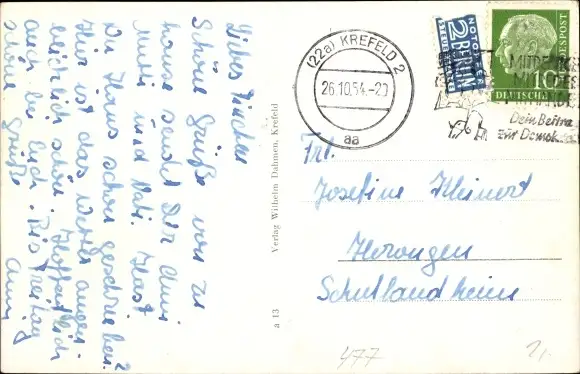 Liebes Finchen
Schöne Grüße von zu
hause sendet Dir Anni
Mutti und Vati. Hast
Du Hans schon geschrieben?
Hier ist das Wetter augen-
blicklich schön. Hoffentlich
auch bei Euch. Bis Freitag
schöne Grüße Anni
Verlag Wilhelm Dahmen, Krefeld
a 13
(22a) KREFELD 2
26.10.54.-20
aa
NOTOPFER
2 BERLIN
STEUERMARKE
10
DEUTSCHE BUNDESPOST
MITDENKEN
Dein Beitrag
zur Demokratie
Frl.
Josefine Kleinert
Herongen
Schullandheim
477